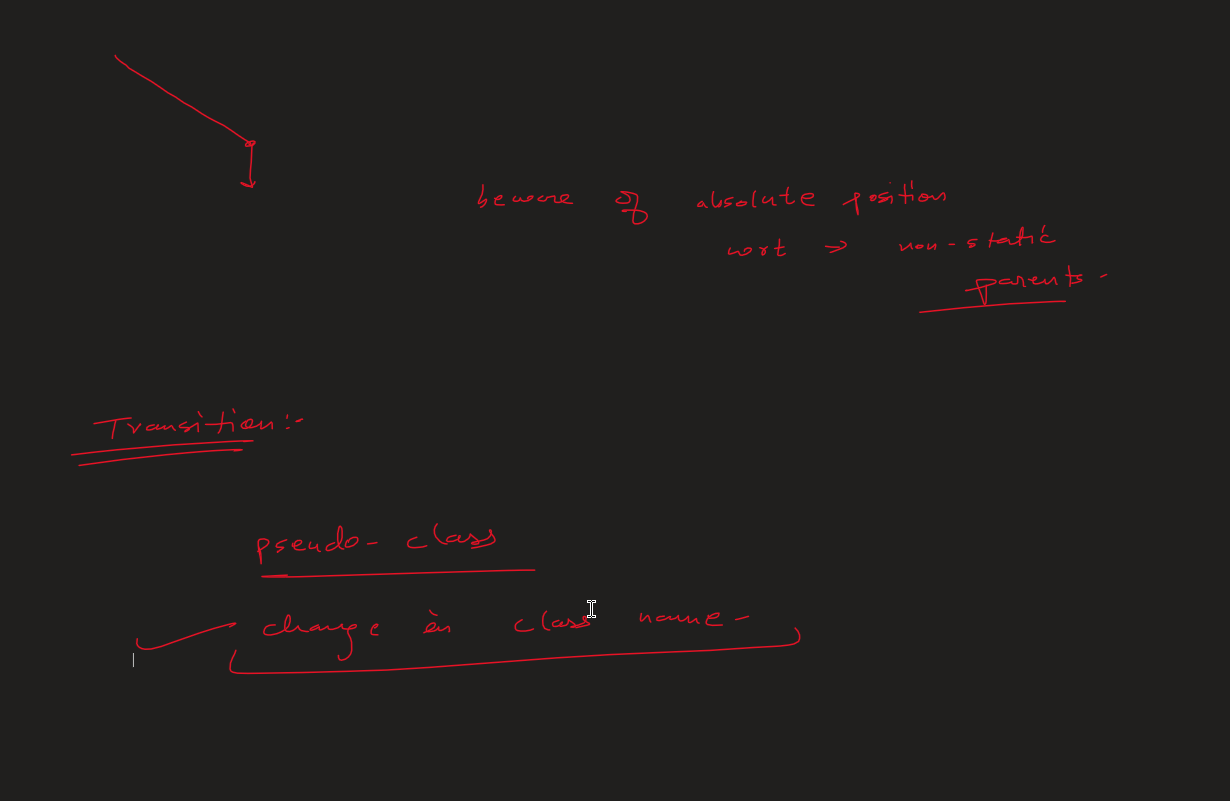 beware of absolute position
wort → non-static
parents -
Transition :-
pseudo - class
change in class name -